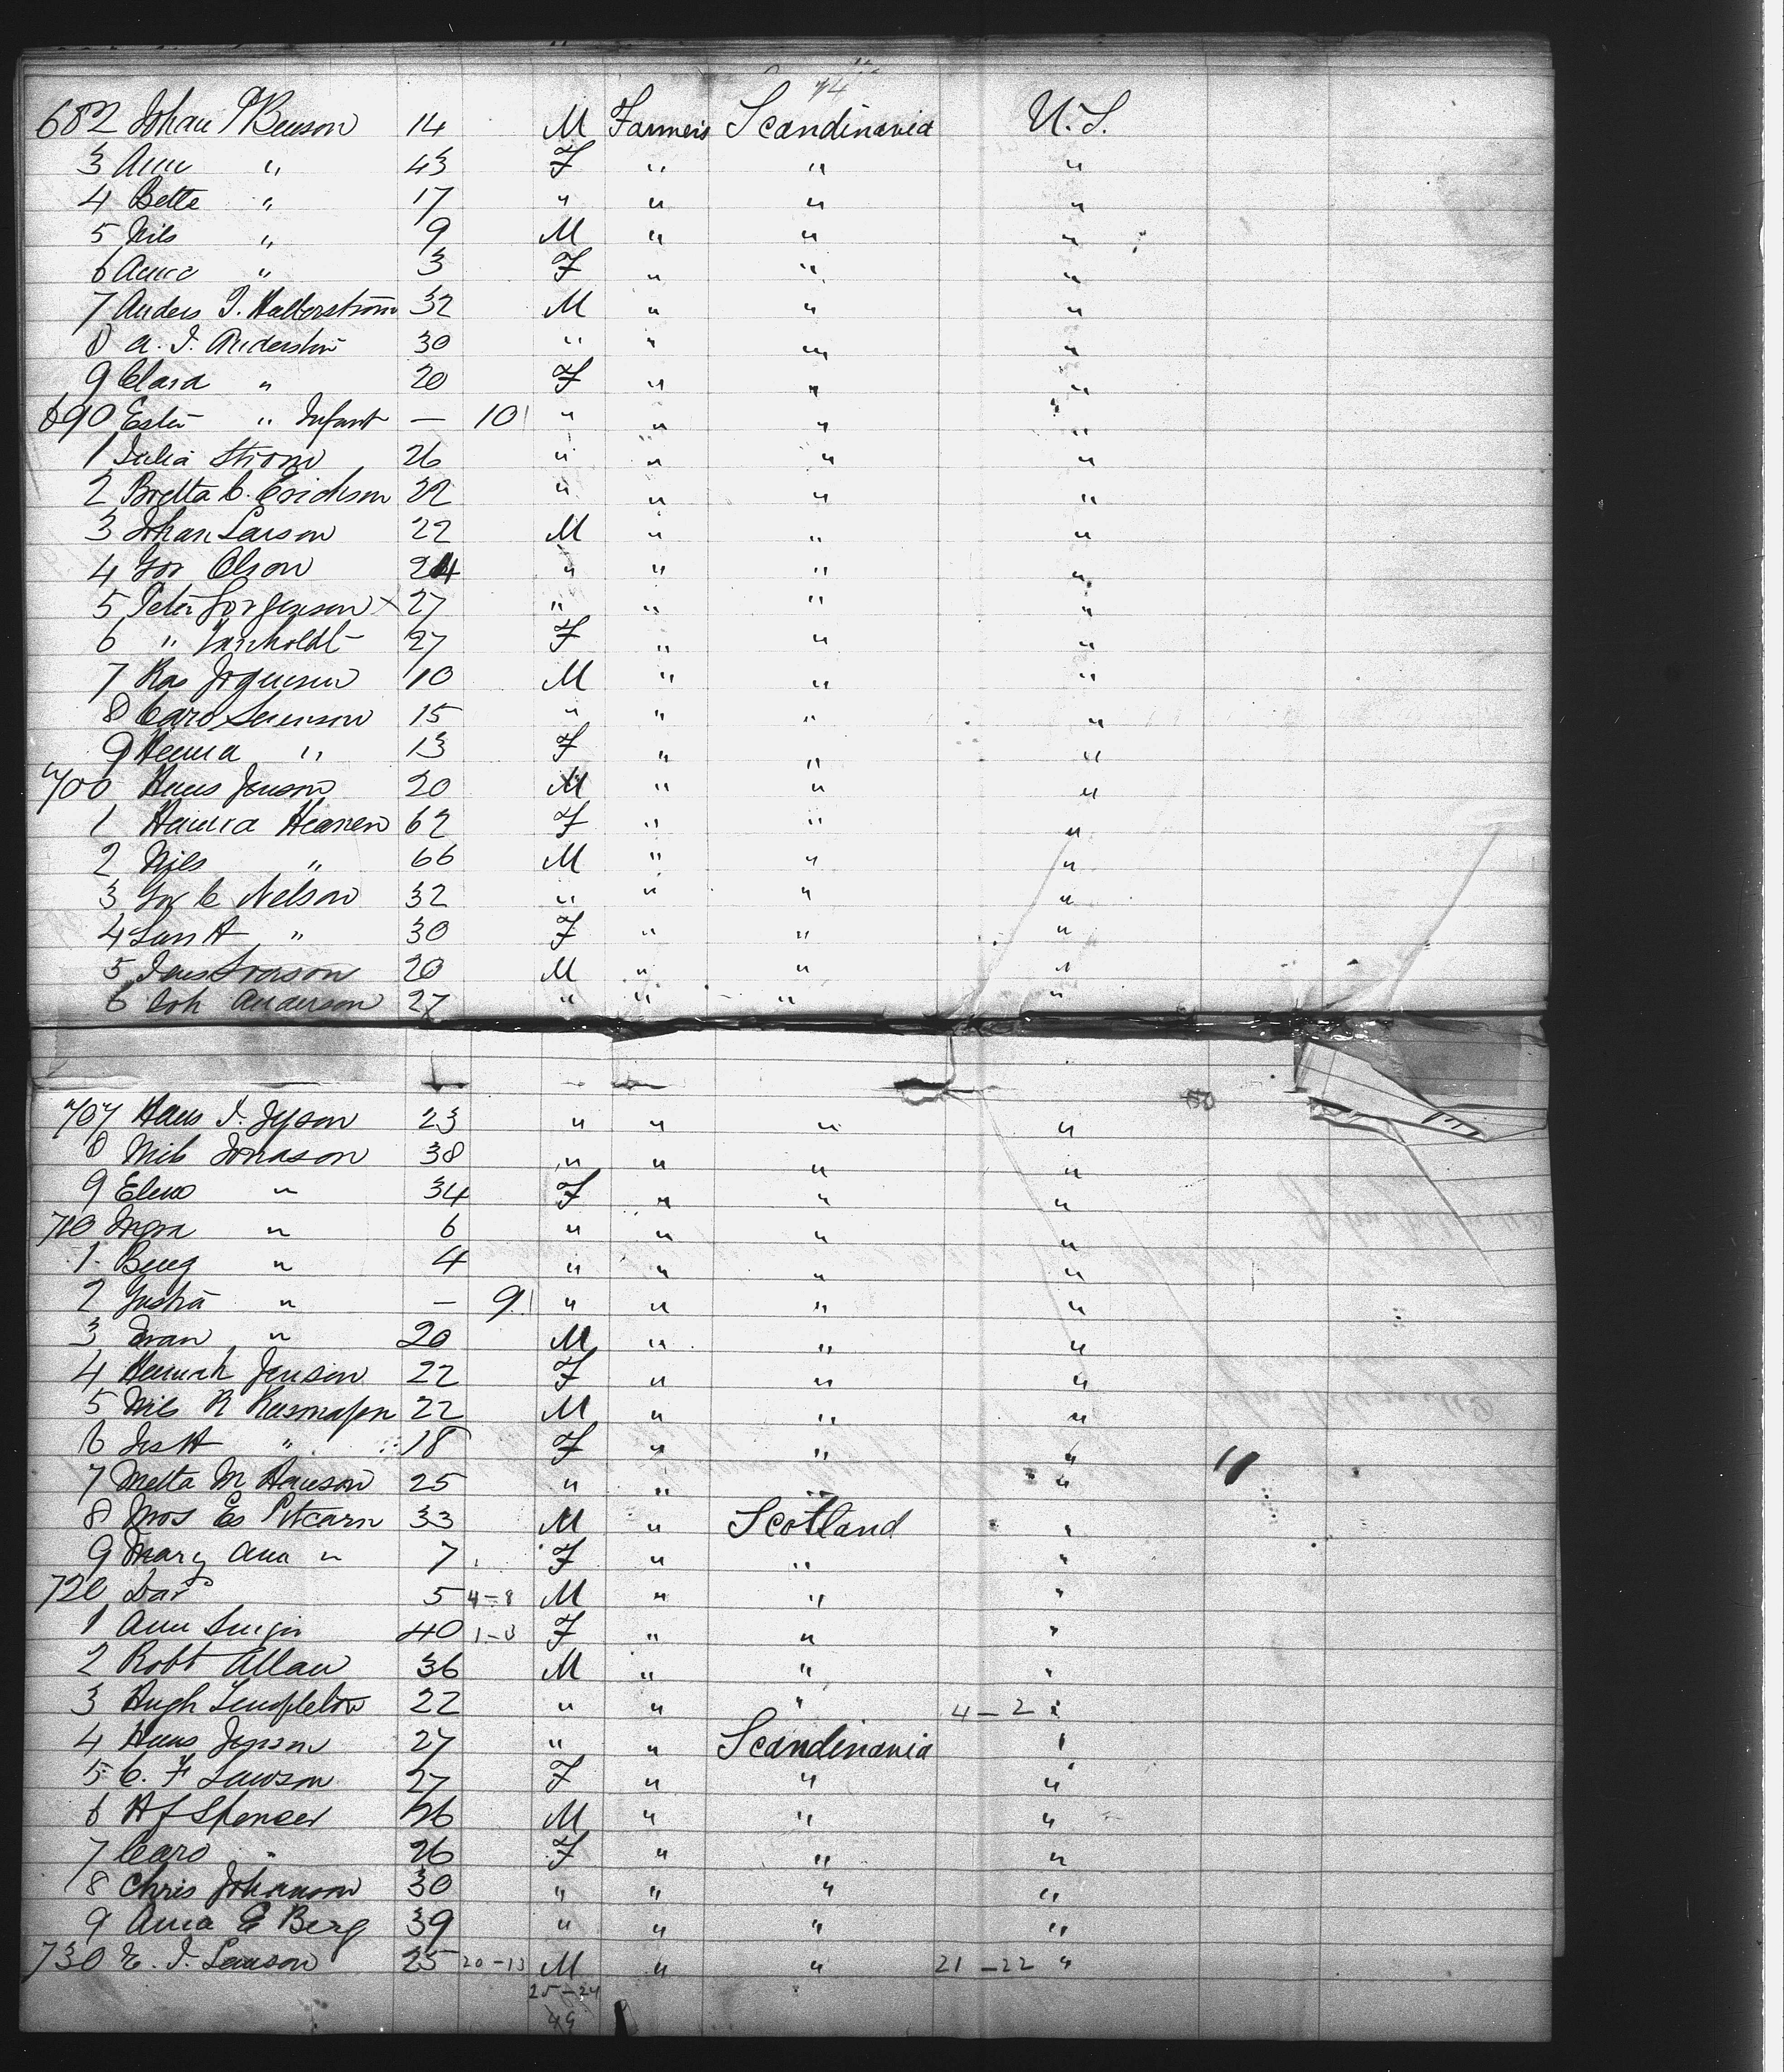 682 Johan P Benson 14 M Farmers Scandinavia U.S.
3 Ann " 43 F " " "
4 Bette " 17 " " " "
5 Nils " 9 M " " "
6 Anna " 3 F " " "
7 Anders I. Hallerstrom 32 M " " "
8 A. I. Anderson 30 " " " "
9 Clara " 20 F " " "
690 Ester " Infant — 10 " " " "
1 Julia Strom 26 " " " "
2 Bretta C. Erickson 22 " " " "
3 Johan Larson 22 M " " "
4 Olson 24 " " " "
5 Peter Jorgenson x 27 " " " "
6 " 27 F " " "
7 Ras Jorgensen 10 M " " "
8 Caro Swenson 15 " " " "
9 Hanna " 13 F " " "
700 Hans Jenson 20 M " " "
1 Hanna Hansen 62 F " " "
2 Nils " 66 M " " "
3 C Nelson 32 " " " "
4 " 30 F " " "
5 20 M " " "
6 Joh Anderson 27 " " " "
707 Hans I. 23 " " " "
8 Nils Jonason 38 " " " "
9 " 34 F " " "
710 " 6 " " " "
1 Beng " 4 " " " "
2 " — 9 " " " "
3 Ivan " 20 M " " "
4 Hannah Jensen 22 F " " "
5 Nils R Rasmassen 22 M " " "
6 " 18 F " " "
7 Metta M Hanson 25 " " " "
8 Pitcarn 33 M " Scotland "
9 Mary Ann " 7 F " " "
720 Dav 5 4-8 M " " "
1 Ann 40 1-3 F " " "
2 Robt Allan 36 M " " "
3 Hugh Templeton 22 " " " 4-2 "
4 Hans Jenson 27 " " Scandinavia "
5 C. F Lawson 27 F " " "
6 H J Spencer 26 M " " "
7 Caro " 26 F " " "
8 Chris Johanson 30 " " " "
9 Anna E Berg 39 " " " "
730 E. I. Lawson 25 20-13 M " " 21-22 "
25-24
49